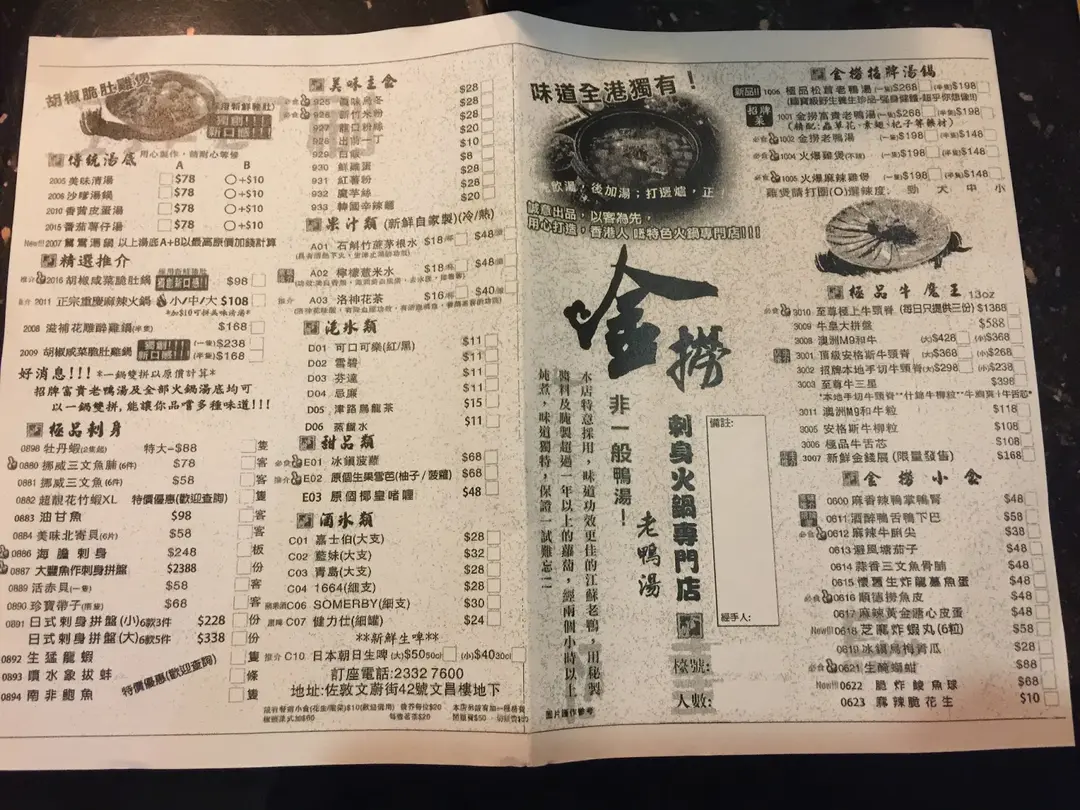 胡椒脆肚雞煲
獨創!!!
新口感!!!
傳統湯底 用心製作，請耐心等候
A B
2005 美味清湯 $78 +$10
2006 沙嗲湯鍋 $78 +$10
2010 香茜皮蛋湯 $78 +$10
2015 番茄薯仔湯 $78 +$10
New!!! 2007 鴛鴦湯鍋 以上湯底A+B以最高原價加錢計算
精選推介
推介 2016 胡椒咸菜脆肚鍋 獨創新口感!!! $98
推介 2011 正宗重慶麻辣火鍋 小/中/大 $108
*加$10可拼美味清湯*
2008 滋補花雕醉雞鍋(半隻) $168
2009 胡椒咸菜脆肚雞鍋 獨創!!! 新口感!!! (一隻)$238
(半隻)$168
好消息!!! *一鍋雙拼以原價計算*
招牌富貴老鴨湯及全部火鍋湯底均可
以一鍋雙拼,能讓你品嘗多種味道!!!
極品刺身
0898 牡丹蝦(2隻起) 特大-$88 隻
0880 挪威三文魚腩(6件) $78 客
0881 挪威三文魚(6件) $58 客
0882 超靚花竹蝦XL 特價優惠(歡迎查詢) 隻
0883 油甘魚 $98 客
0884 美味北寄貝(6片) $58 客
0886 海膽刺身 $248 板
0887 大豐魚作刺身拼盤 $2388 份
0889 活赤貝(一隻) $58 客
0890 珍寶帶子(兩隻) $68 客
0891 日式刺身拼盤(小)6款3件 $228 份
日式刺身拼盤(大)6款5件 $338 份
0892 生猛龍蝦 隻
0893 噴水象拔蚌 條
0894 南非鮑魚 隻
特價優惠(歡迎查詢)
美味主食
必食 925 讚岐烏冬 $28
必食 926 新竹米粉 $28
927 龍口粉絲 $28
928 出前一丁 $20
929 白飯 $10
930 鮮雞蛋 $8
931 紅薯粉 $28
932 魔芋絲 $28
933 韓國辛辣麵 $20
果汁類 (新鮮自家製)(冷/熱)
A01 石斛竹蔗茅根水 $18/杯 $48/壺
A02 檸檬薏米水 $18/杯 $48/壺
推介 A03 洛神花茶 $16/杯 $40/壺
汽水類
D01 可口可樂(紅/黑) $11
D02 雪碧 $11
D03 芬達 $11
D04 忌廉 $11
D05 津路烏龍茶 $15
D06 蒸餾水 $11
甜品類
必食 E01 冰鎮菠蘿 $68
推介 E02 原個生果雪芭(柚子/菠蘿) $68
E03 原個椰皇啫喱 $48
酒水類
C01 嘉士伯(大支) $28
C02 藍妹(大支) $32
C03 青島(大支) $28
C04 1664(細支) $28
蘋果酒 C06 SOMERBY(細支) $30
黑啤 C07 健力仕(細罐) $24
**新鮮生啤**
推介 C10 日本朝日生啤 (大)$50 50cl (小)$40 30cl
訂座電話:2332 7600
地址:佐敦文蔚街42號文昌樓地下
味道全港獨有！
飲湯，後加湯；打邊爐，正！
誠意出品，以客為先，
用心打造，香港人 嘅特色火鍋專門店!!!
金撈
刺身火鍋專門店
非一般鴨湯！
老鴨湯
本店特意採用，味道功效更佳的江蘇老鴨，用秘製
醬料及醃製超過一年以上的蘿蔔，經兩個小時以上
炖煮，味道獨特，保證一試難忘!!
備註:
經手人:
檯號:
人數:
圖片謹作參考
金撈招牌湯鍋
新品!! 1006 極品松茸老鴨湯 (一隻)$268 (半隻)$198
招牌菜 1001 金撈富貴老鴨湯 (一隻)$268 (半隻)$198
(精配:蟲草花·素翅·杞子等藥材)
必食 1002 金撈老鴨湯 (一隻)$198 (半隻)$148
必食 1004 火爆雞煲(不辣) (一隻)$198 (半隻)$148
必食 1005 火爆麻辣雞煲 (一隻)$198 (半隻)$148
雞煲請打圈(O)選辣度: 勁 大 中 小
極品牛魔王 13oz
必食 3010 至尊極上牛頸脊 (每日只提供三份) $1388
3009 牛皇大拼盤 $588
3008 澳洲M9和牛 (大)$428 (小)$368
3001 頂級安格斯牛頸脊 (大)$368 (小)$268
3002 招牌本地手切牛頸脊 (大)$298 (小)$238
3003 至尊牛三星 $398
*本地手切牛頸脊**什錦牛柳粒**牛胸爽+牛舌芯*
3011 澳洲M9和牛粒 $118
3005 安格斯牛柳粒 $108
3006 極品牛舌芯 $108
3007 新鮮金錢展(限量發售) $168
金撈小食
0600 麻香辣鴨掌鴨腎 $48
0611 酒醉鴨舌鴨下巴 $58
必食 0612 麻辣牛脷尖 $38
0613 避風塘茄子 $48
0614 蒜香三文魚骨腩 $48
0615 懷舊生炸龍薑魚蛋 $48
必食 0616 順德撈魚皮 $48
0617 麻辣黃金糖心皮蛋 $48
New!!! 0618 芝麻炸蝦丸(6粒) $58
0619 冰鎮烏梅青瓜 $28
必食 0621 生醃蟛蚶 $88
New!!! 0622 脆炸鯪魚球 $68
0623 麻辣脆花生 $10